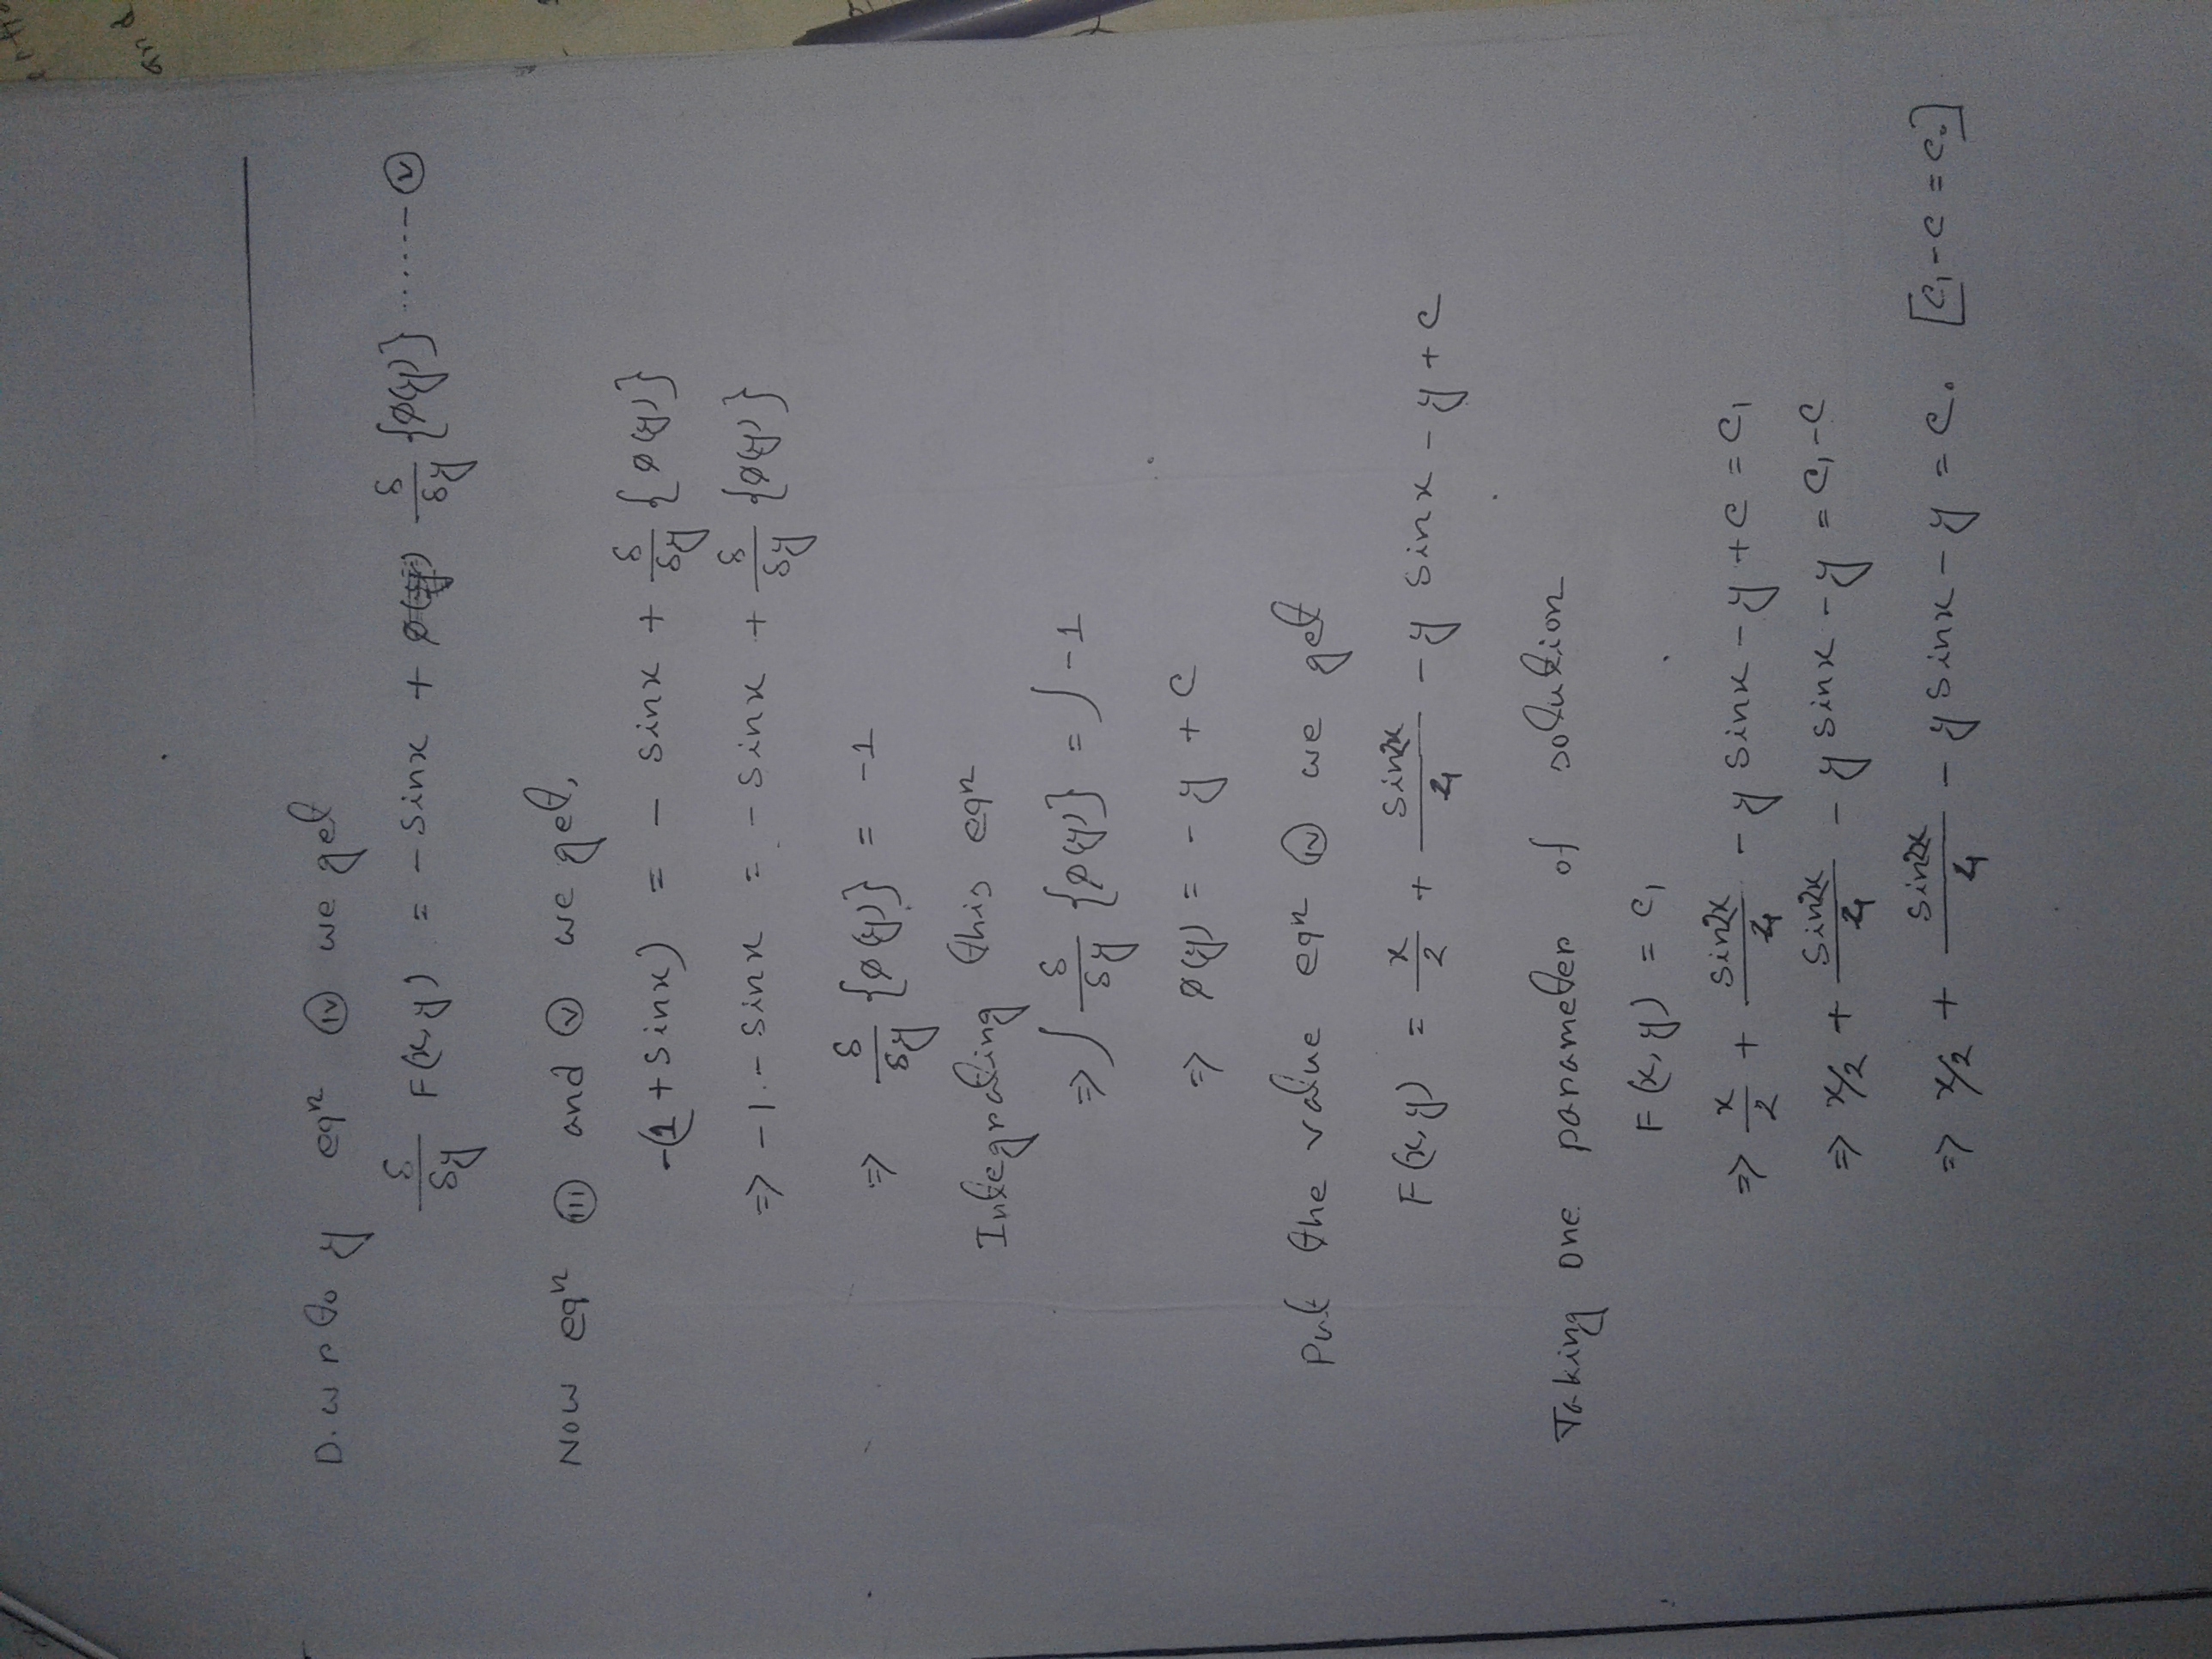 D. w r to y eqⁿ (iv) we get
δ/δy F(x, y) = - sinx + δ/δy {φ(y)} ........ (v)
Now eqⁿ (iii) and (v) we get,
-(1 + sinx) = - sinx + δ/δy {φ(y)}
=> -1 - sinx = - sinx + δ/δy {φ(y)}
=> δ/δy {φ(y)} = -1
Integrating this eqⁿ
=> ∫ δ/δy {φ(y)} = ∫ -1
=> φ(y) = - y + c
Put the value eqⁿ (iv) we get
F(x, y) = x/2 + sin2x/4 - y sinx - y + c
Taking one parameter of solution
F(x, y) = c₁
=> x/2 + sin2x/4 - y sinx - y + c = c₁
=> x/2 + sin2x/4 - y sinx - y = c₁ - c
=> x/2 + sin2x/4 - y sinx - y = c₀ [c₁ - c = c₀]
and